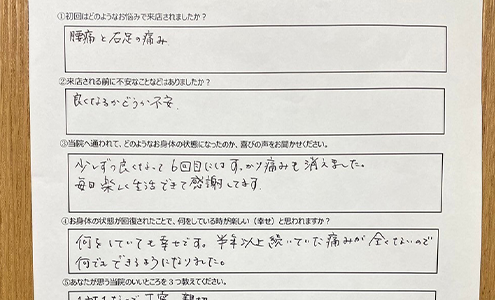 ①初回はどのようなお悩みで来店されましたか？
腰痛と右足の痛み
②来店される前に不安なことなどはありましたか？
良くなるかどうか不安
③当院へ通われて、どのようなお身体の状態になったのか、喜びの声をお聞かせください。
少しずつ良くなって6回目にはすっかり痛みも消えました。
毎日楽しく生活できて感謝してます。
④お身体の状態が回復されたことで、何をしている時が楽しい（幸せ）と思われますか？
何をしていても幸せです。半年以上続いていた痛みが全くないので
何でもできるようになりました。
⑤あなたが思う当院のいいところを３つ教えてください。